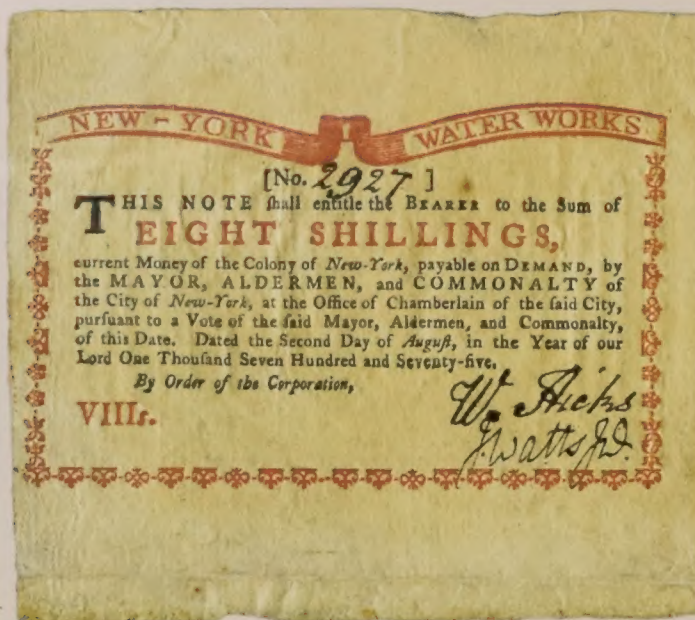 NEW-YORK WATER WORKS
[No. 2927 ]
THIS NOTE ſhall entitle the BEARER to the Sum of
EIGHT SHILLINGS,
current Money of the Colony of New-York, payable on DEMAND, by
the MAYOR, ALDERMEN, and COMMONALTY of
the City of New-York, at the Office of Chamberlain of the ſaid City,
purſuant to a Vote of the ſaid Mayor, Aldermen, and Commonalty,
of this Date. Dated the Second Day of Auguſt, in the Year of our
Lord One Thouſand Seven Hundred and Seventy-five.
By Order of the Corporation,
W. Hicks
VIIIs.
J. Watts Jr.